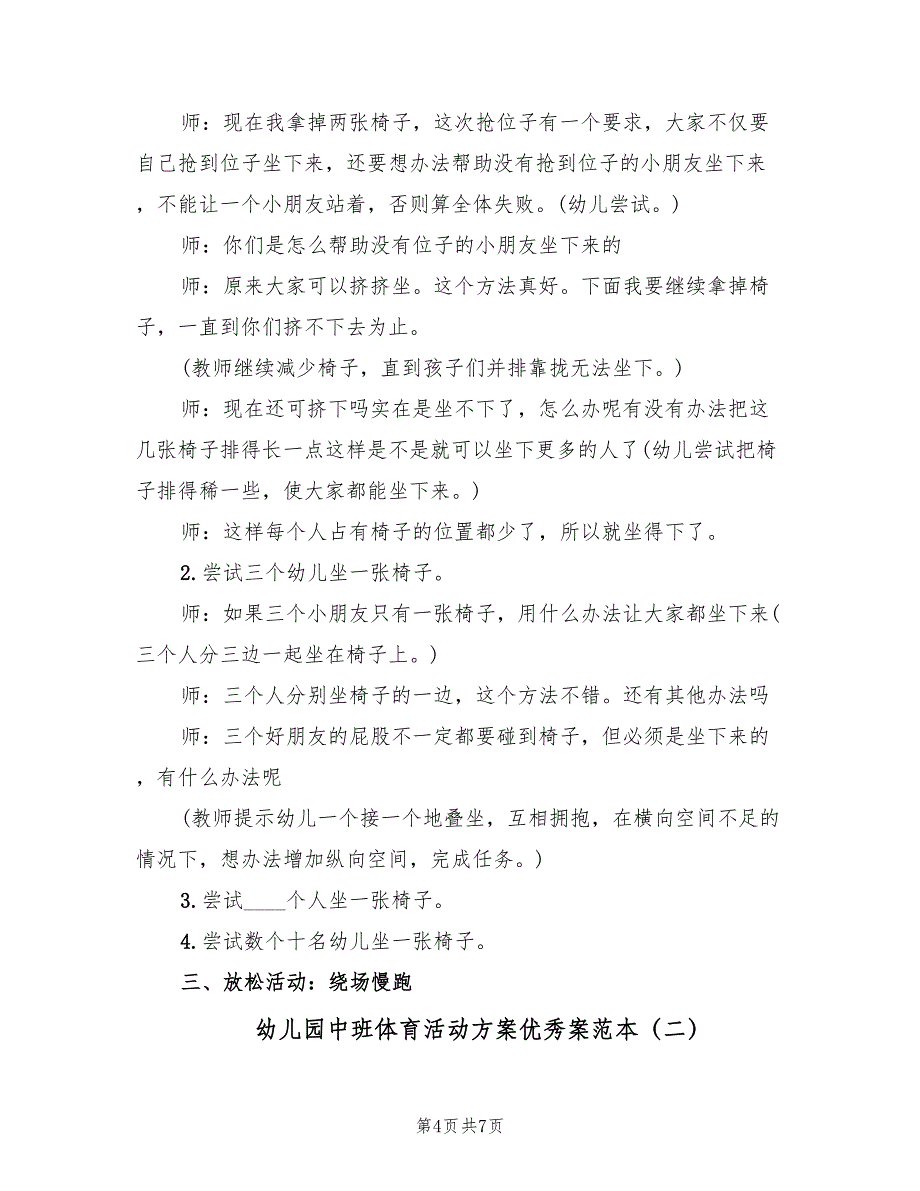 师：现在我拿掉两张椅子，这次抢位子有一个要求，大家不仅要
自己抢到位子坐下来，还要想办法帮助没有抢到位子的小朋友坐下来
，不能让一个小朋友站着，否则算全体失败。(幼儿尝试。)
师：你们是怎么帮助没有位子的小朋友坐下来的
师：原来大家可以挤挤坐。这个方法真好。下面我要继续拿掉椅
子，一直到你们挤不下去为止。
(教师继续减少椅子，直到孩子们并排靠拢无法坐下。)
师：现在还可挤下吗实在是坐不下了，怎么办呢有没有办法把这
几张椅子排得长一点这样是不是就可以坐下更多的人了(幼儿尝试把椅
子排得稀一些，使大家都能坐下来。)
师：这样每个人占有椅子的位置都少了，所以就坐得下了。
2.尝试三个幼儿坐一张椅子。
师：如果三个小朋友只有一张椅子，用什么办法让大家都坐下来(
三个人分三边一起坐在椅子上。)
师：三个人分别坐椅子的一边，这个方法不错。还有其他办法吗
师：三个好朋友的屁股不一定都要碰到椅子，但必须是坐下来的
，有什么办法呢
(教师提示幼儿一个接一个地叠坐，互相拥抱，在横向空间不足的
情况下，想办法增加纵向空间，完成任务。)
3.尝试____个人坐一张椅子。
4.尝试数个十名幼儿坐一张椅子。
三、放松活动：绕场慢跑
幼儿园中班体育活动方案优秀案范本（二）
第4页共7页